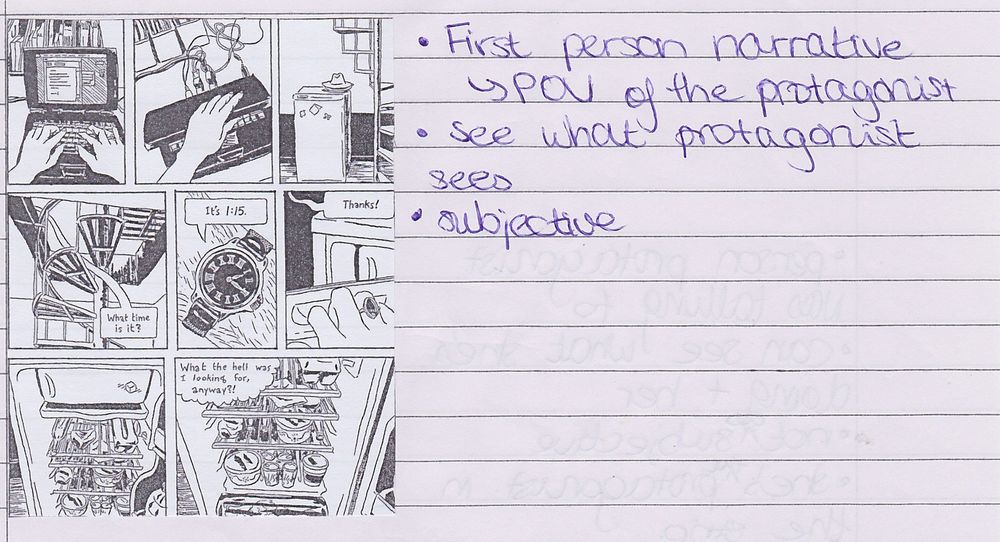 What time
is it?
It's 1:15.
Thanks!
What the hell was
I looking for,
anyway?!
• First person narrative
↳ POV of the protagonist
• see what protagonist
sees
• subjective